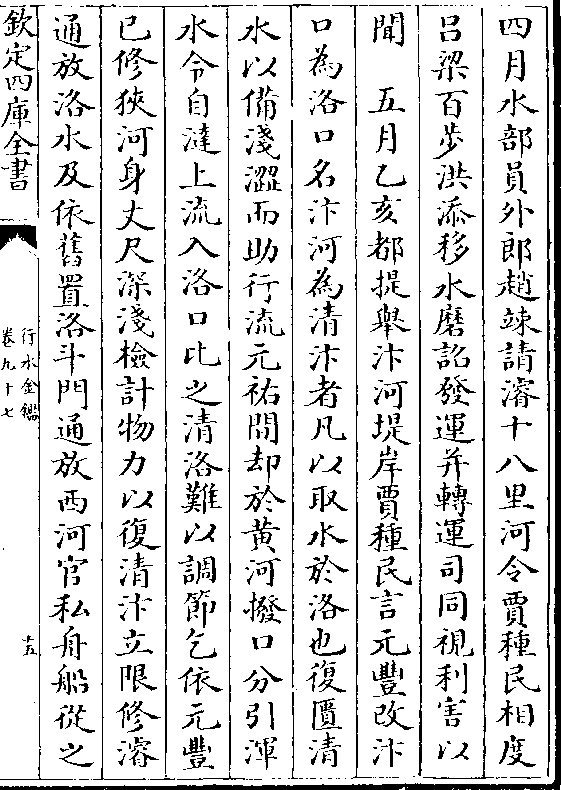 四月水部員外郎趙竦請濬十八里河令賈種民相度
吕梁百步洪添移水磨詔發運并轉運司同視利害以
聞　五月乙亥都提舉汴河堤岸賈種民言元豐改汴
口為洛口名汴河為清汴者凡以取水於洛也復匱清
水以備淺澀而助行流元祐間却於黄河撥口分引渾
水令自䢛上流入洛口比之清洛難以調節乞依元豐
已修狹河身丈尺深淺檢計物力以復清汴立限修濬
通放洛水及依舊置洛斗門通放西河官私舟船從之
欽定四庫全書
行水金鑑
卷九十七
十五